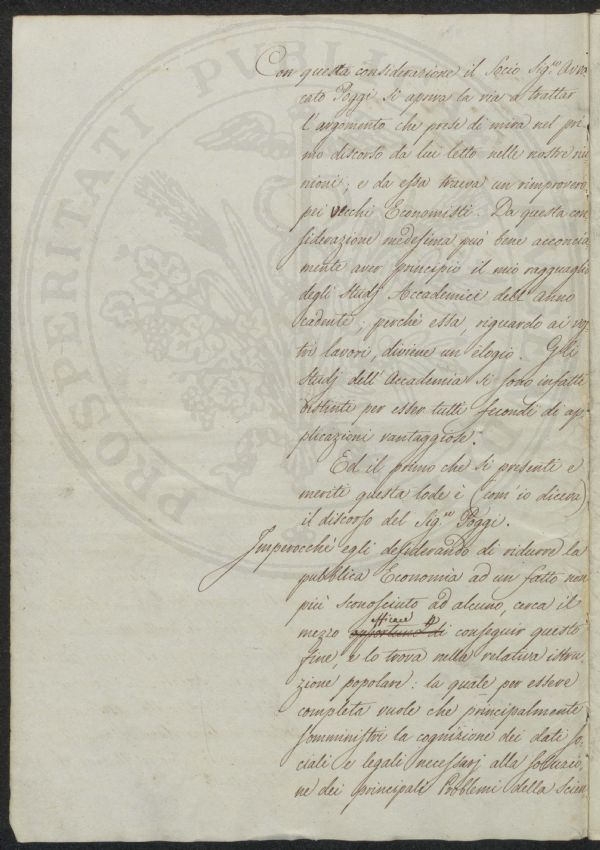 PROSPERITATI PUBLI
Con questa considerazione il Socio Sig.re Avvo
cato Poggi si apriva la via a trattar
l'argomento che prese di mira nel pri
mo discorso da lui letto nelle nostre riu
nioni; e da essa traeva un rimprovero
pei vecchi Economisti. Da questa con
siderazione medesima può bene acconcia
mente aver principio il mio ragguaglio
degli Studj Accademici dell'Anno
cadente; perchè essa, riguardo ai vos
tri lavori, diviene un elogio. Gli
Studj dell'Accademia si sono infatti
distinti per esser tutti fecondi di ap
plicazioni vantaggiose.
Ed il primo che si presenti e
meriti questa lode è (com'io diceva)
il discorso del Sig.re Poggi.
Imperocchè egli desiderando di ridurre la
pubblica Economia ad un fatto non
più sconosciuto ad alcuno, cerca il
efficace p
mezzo opportuno di conseguir questo
fine, e lo trova nella relativa istru
zione popolare: la quale per essere
completa vuole che principalmente
somministri la cognizione dei dati so
ciali e legali necessarj alla soluzio
ne dei principali Problemi della Scien